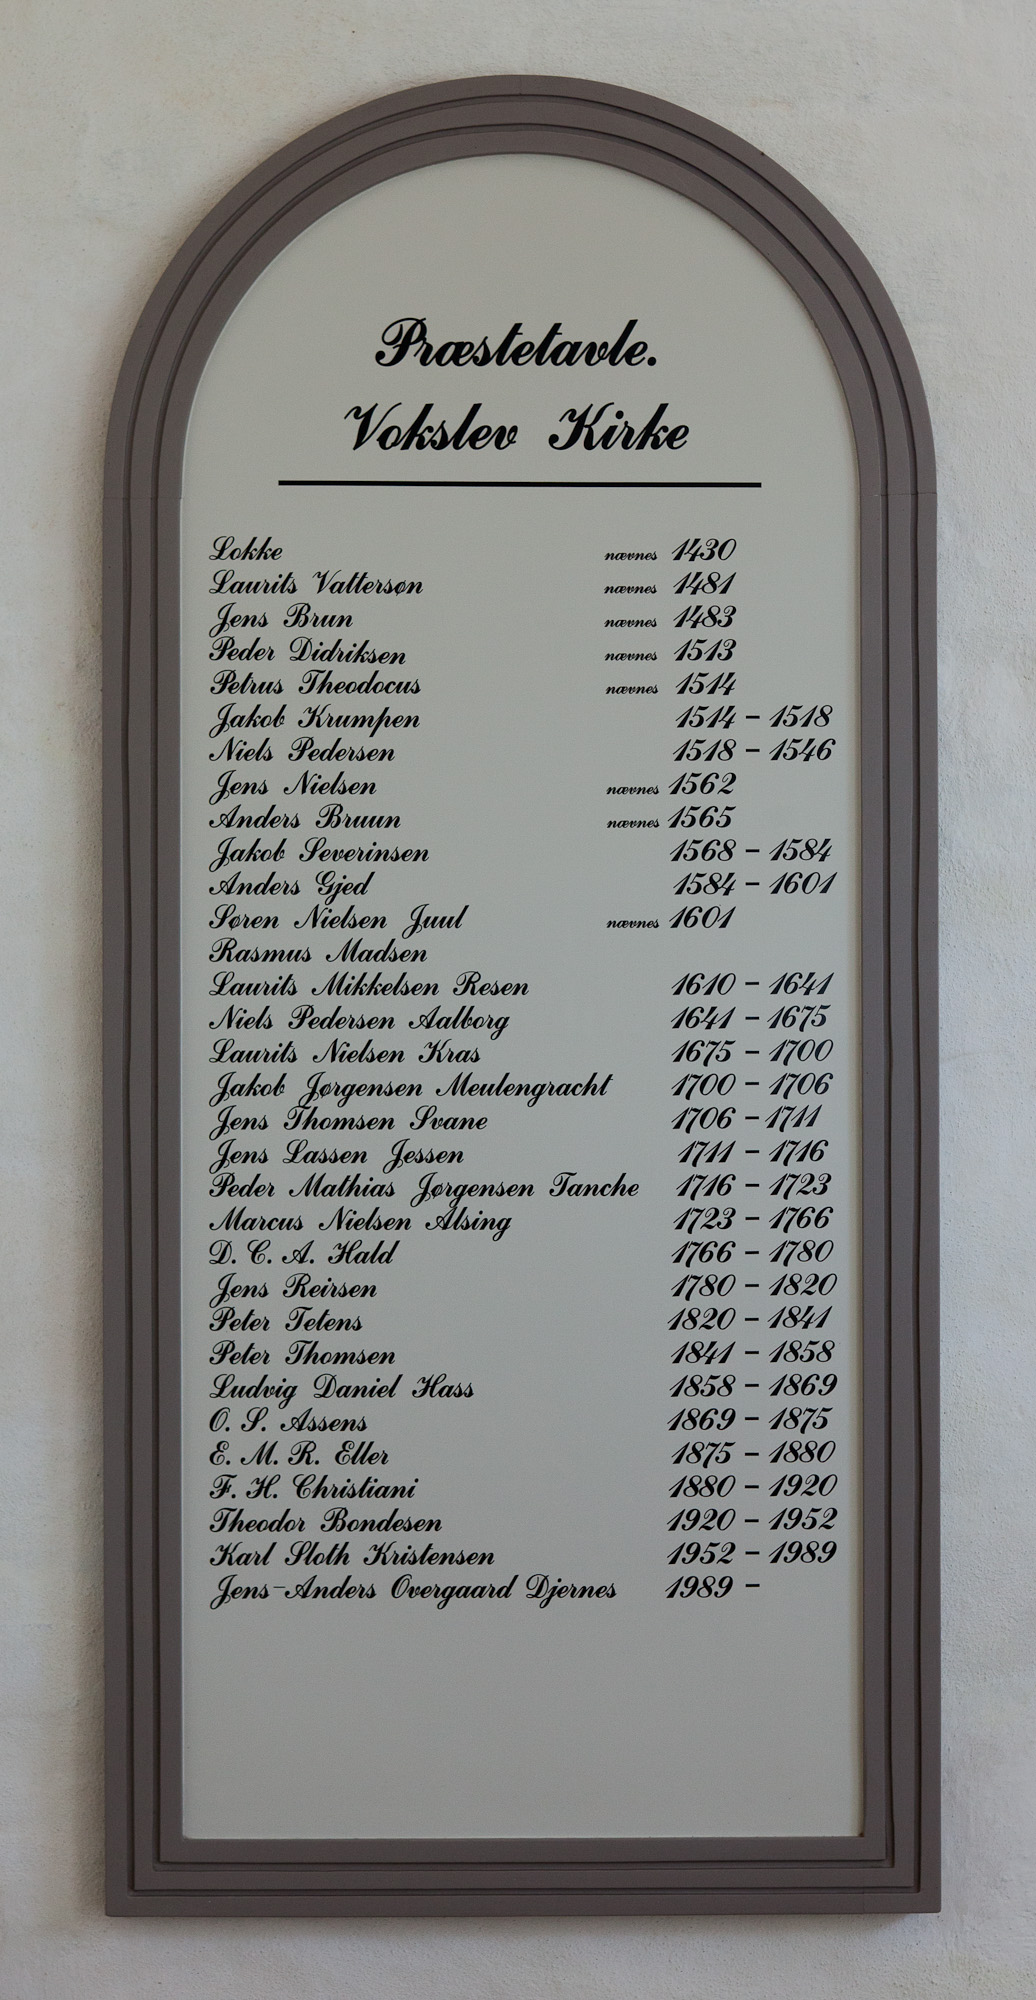 Præstetavle.
Vokslev Kirke
Lokke nævnes 1430
Laurits Vattersøn nævnes 1481
Jens Brun nævnes 1483
Peder Didriksen nævnes 1513
Petrus Theodocus nævnes 1514
Jakob Krumpen 1514 - 1518
Niels Pedersen 1518 - 1546
Jens Nielsen nævnes 1562
Anders Bruun nævnes 1565
Jakob Severinsen 1568 - 1584
Anders Gjed 1584 - 1601
Søren Nielsen Juul nævnes 1601
Rasmus Madsen
Laurits Mikkelsen Resen 1610 - 1641
Niels Pedersen Aalborg 1641 - 1675
Laurits Nielsen Kras 1675 - 1700
Jakob Jørgensen Meulengracht 1700 - 1706
Jens Thomsen Svane 1706 - 1711
Jens Lassen Jessen 1711 - 1716
Peder Mathias Jørgensen Tanche 1716 - 1723
Marcus Nielsen Alsing 1723 - 1766
D. C. A. Hald 1766 - 1780
Jens Reirsen 1780 - 1820
Peter Tetens 1820 - 1841
Peter Thomsen 1841 - 1858
Ludvig Daniel Hass 1858 - 1869
O. S. Assens 1869 - 1875
E. M. R. Eller 1875 - 1880
F. H. Christiani 1880 - 1920
Theodor Bondesen 1920 - 1952
Karl Sloth Kristensen 1952 - 1989
Jens-Anders Overgaard Djernes 1989 -